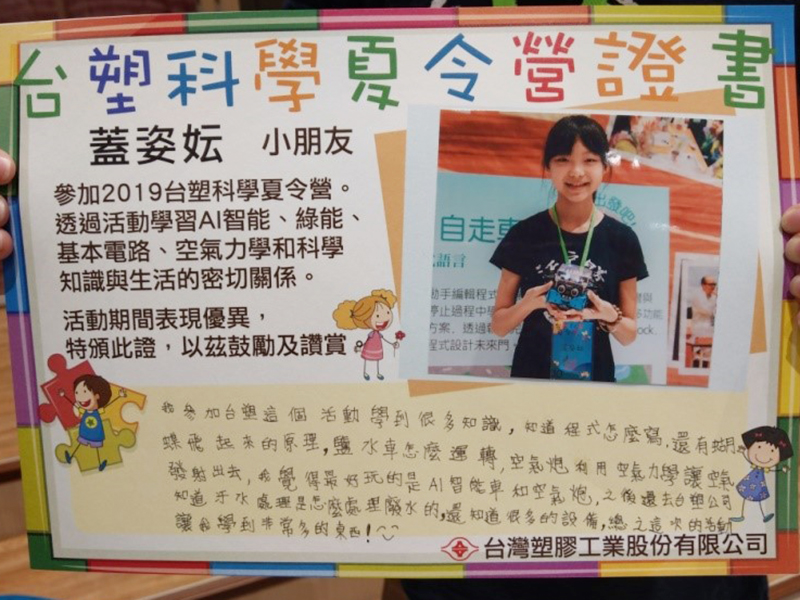 台塑科學夏令營證書
蓋姿妘 小朋友
參加2019台塑科學夏令營。
透過活動學習AI智能、綠能、
基本電路、空氣力學和科學
知識與生活的密切關係。
活動期間表現優異，
特頒此證，以茲鼓勵及讚賞。
出發吧!
自走車
語言
動手編輯程式
停止過程中學
多功能
方案。透過
ock.
程式設計未來門
我參加台塑這個活動學到很多知識，知道程式怎麼寫，還有蝴
蝶飛起來的原理，鹽水車怎麼運轉，空氣炮利用空氣力學讓空氣
發射出去，我覺得最好玩的是AI智能車和空氣炮，之後還去台塑公司
知道汙水處理是怎麼處理廢水的，還知道很多的設備，總之這次的活動
讓我學到非常多的東西!
台灣塑膠工業股份有限公司